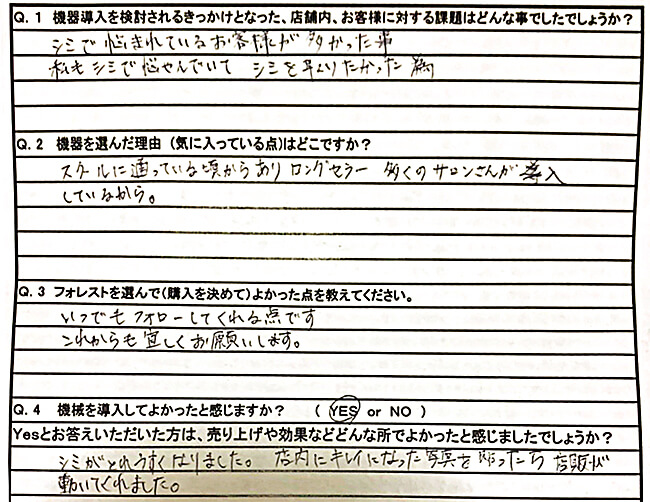 Q. 1 機器導入を検討されるきっかけとなった、店舗内、お客様に対する課題はどんな事でしたでしょうか？
シミで悩まれているお客様が多かった事
私もシミで悩やんでいて シミを早くりたかった為
Q. 2 機器を選んだ理由（気に入っている点）はどこですか？
スクールに通っている頃からあり ロングセラー 多くのサロンさんが 導入
しているから。
Q. 3 フォレストを選んで（購入を決めて）よかった点を教えてください。
いつでもフォローしてくれる点です
これからも宜しくお願いします。
Q. 4 機械を導入してよかったと感じますか？ （ YES or NO ）
Yesとお答えいただいた方は、売り上げや効果などどんな所でよかったと感じましたでしょうか？
シミがとれうすくなりました。店内にキレイになった写真を貼ったら 店販が
動いてくれました。